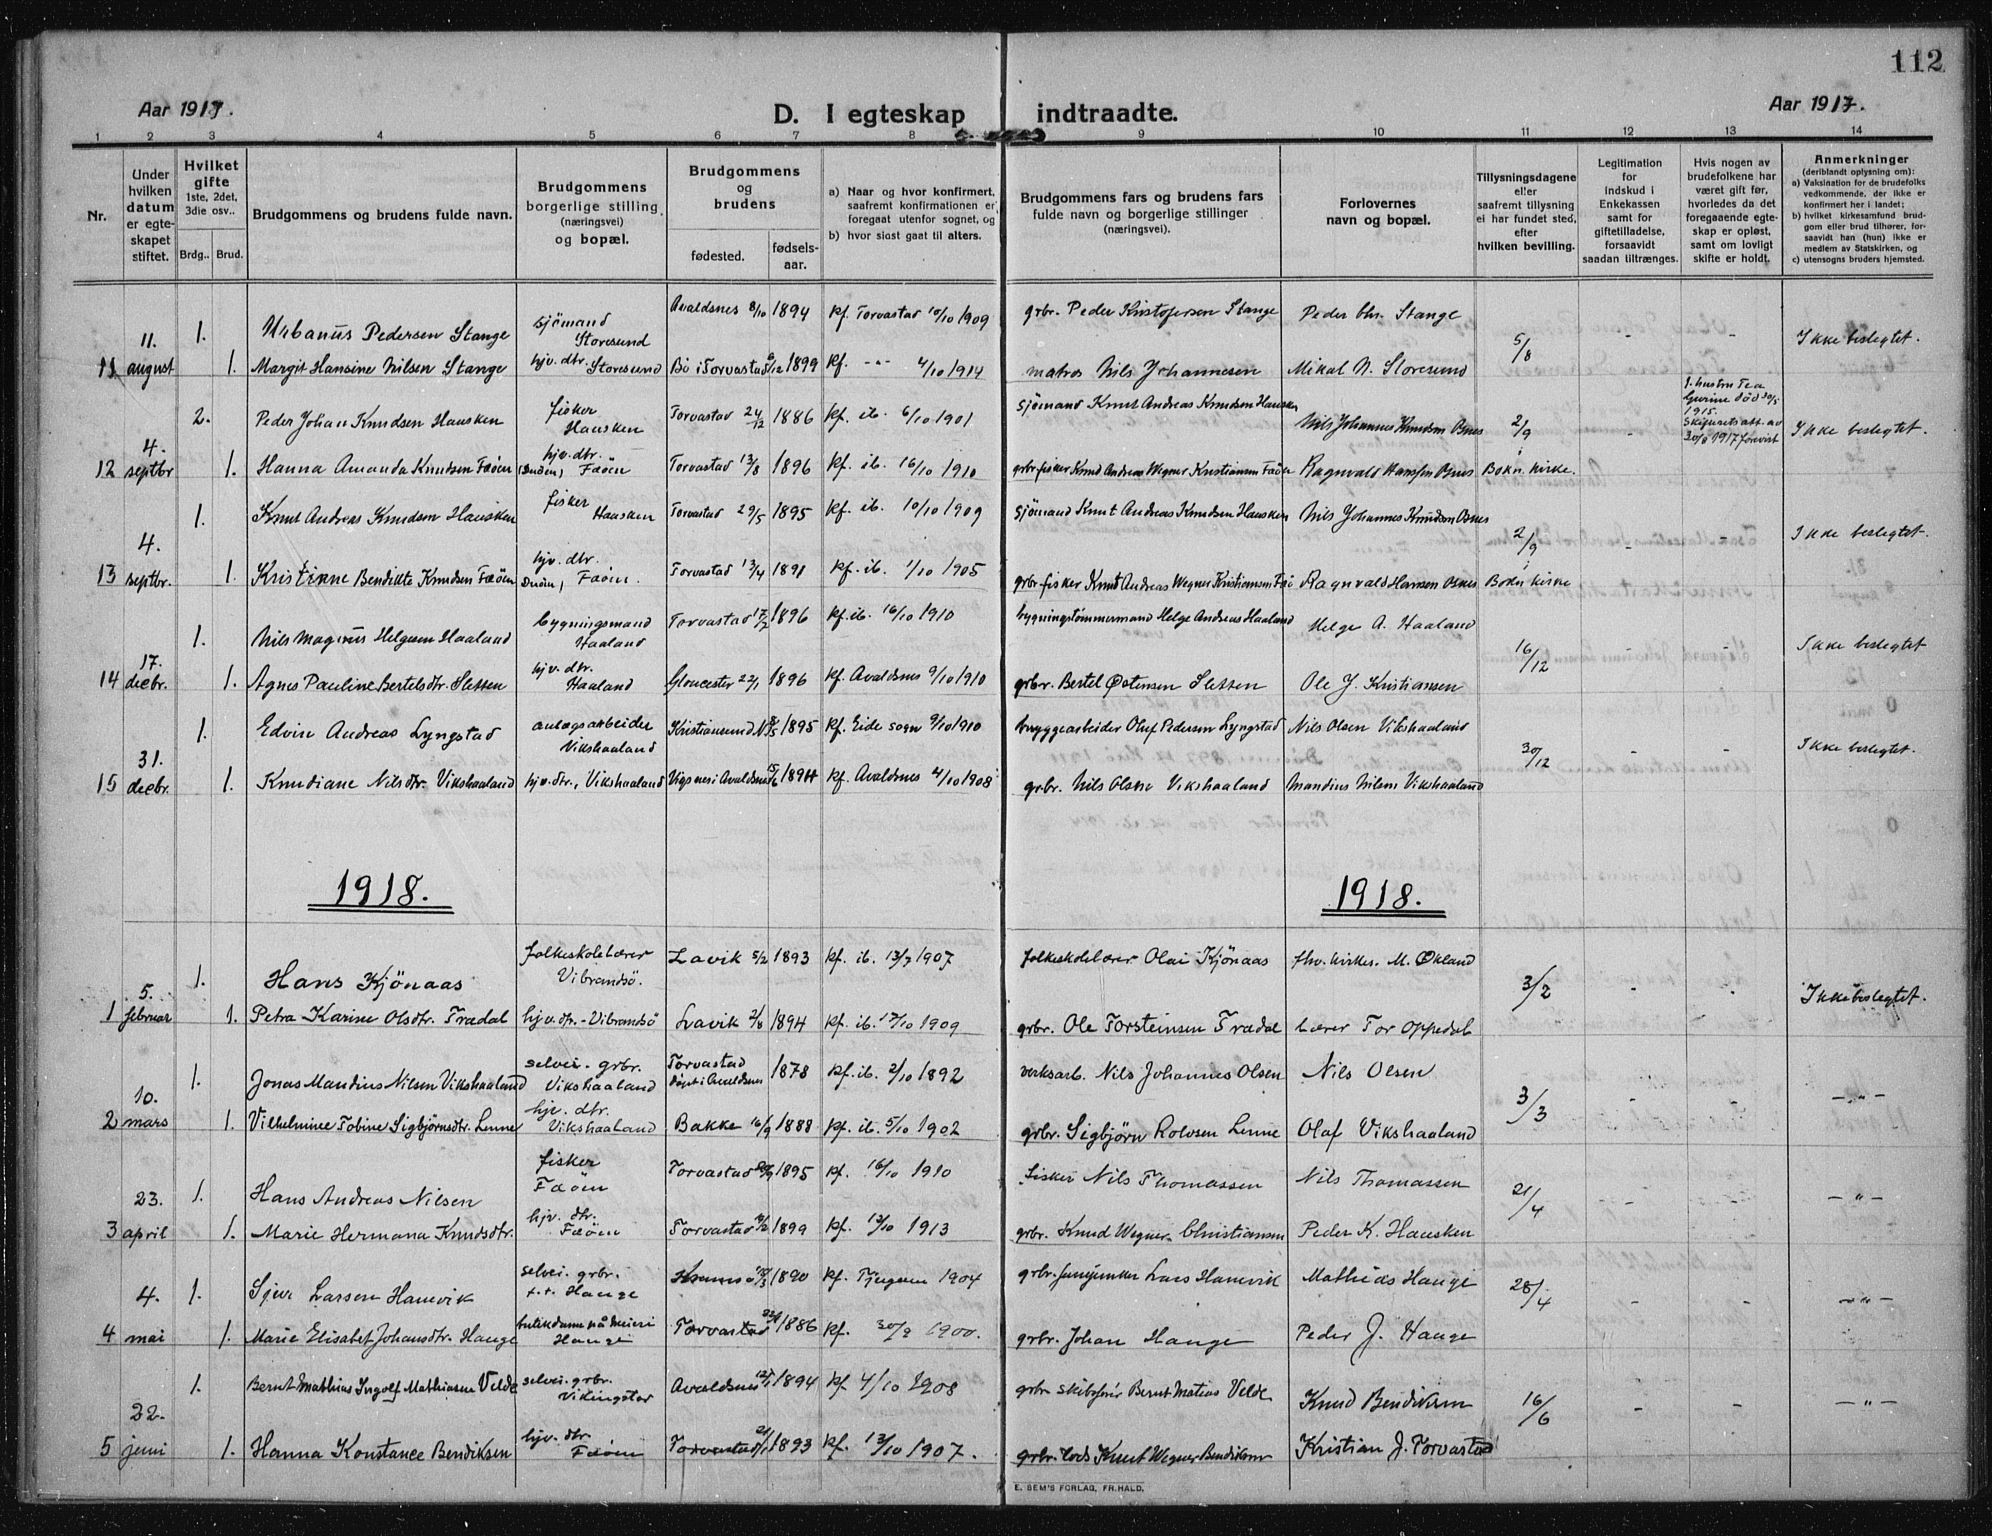 112
Aar 1917.
D. I egteskap indtraadte.
Aar 1917.
1 2 3 4 5 6 7 8 9 10 11 12 13 14
Nr.
Under hvilken datum er egteskapet stiftet.
Hvilket gifte 1ste, 2det, 3die osv..
Brdg.. Brud.
Brudgommens og brudens fulde navn.
Brudgommens borgerlige stilling (næringsvei) og bopæl.
Brudgommens og brudens
fødested. fødselsaar.
a) Naar og hvor konfirmert, saafremt konfirmationen er foregaat utenfor sognet, og
b) hvor sidst gaat til alters.
Brudgommens fars og brudens fars fulde navn og borgerlige stillinger (næringsvei).
Forlovernes navn og bopæl.
Tillysningsdagene eller saafremt tillysning ei har fundet sted, efter hvilken bevilling.
Legitimation for indskud i Enkekassen samt for giftetilladelse, forsaavidt saadan tiltrænges.
Hvis nogen av brudefolkene har været gift før, hvorledes da det foregaaende egteskap er opløst, samt om lovligt skifte er holdt.
Anmerkninger (deriblandt oplysning om):
a) Vaksination for de brudefolks vedkommende, der ikke er konfirmert her i landet;
b) hvilket kirkesamfund brudgom eller brud tilhører, forsaavidt han (hun) ikke er medlem av Statskirken, og
c) utensogns bruders hjemsted.
1. Urbanus Pedersen Stange sjömand Storesund Avaldsnes 8/10 1894 kf. Torvastad 10/10 1909 grbr. Peder Kristofersen Stange Peder Chr. Stange
11 11. august 1. Margit Hansine Nilsen Stange hjv. dtr. Storesund Bö i Torvastad 1899 kf. -"- 4/10 1914 matros Nils Johannesen Mikal N. Storesund 5/8 - - Ikke beslegtet.
2. Peder Johan Knudsen Hausken fisker Hausken Torvastad 24/12 1886 kf. ib. 6/10 1901 sjömand Knut Andreas Knudsen Hausken Nils Johannes Knudsen Osnes 2/9 1. hustru Tea Gurine död 30/5 1915. Skifteretsatt. av 30/8 1917 forevist
12 4. septbr 1. Hanna Amanda Knudsen Fæöen hjv. dtr. Fæöen Torvastad 13/8 1896 kf. ib. 16/10 1910 grbr. fisker Knud Andreas Wegner Kristiansen Fæöen Ragnvald Hansen Osnes Bokn kirke. - Ikke beslegtet.
1. Knut Andreas Knudsen Hausken fisker Hausken Torvastad 29/5 1895 kf. ib. 10/10 1909 sjömand Knut Andreas Knudsen Hausken Nils Johannes Knudsen Osnes 2/9
13 4. septbr. 1. Kristinne Bendikte Knudsen Fæöen hjv. dtr. Fæöen. Torvastad 13/4 1891 kf. ib. 1/10 1905 grbr. fisker Knut Andreas Wegner Kristiansen Fæö Ragnvald Hansen Osnes Bokn kirke - - Ikke beslegtet.
1. Nils Magnus Helgesen Haaland bygningsmand Haaland Torvastad 17/2 1896 kf. ib. 16/10 1910 bygningstömmermand Helge Andreas Haaland Helge A. Haaland
14 17. decbr. 1. Agnes Pauline Bertelsdtr. Sletten hjv. dtr. Haaland Gloucester 22/1 1896 kf. Avaldsnes 9/10 1910 grbr. Bertel Østensen Sletten Ole J. Kristiansen 16/12 - - Ikke beslegtet
1. Edvin Andreas Lyngstad anlægsarbeider Vikshaaland Kristiansund N. 1895 kf. Eide sogn 9/10 1910 bryggearbeider Oluf Pedersen Lyngstad Nils Olsen Vikshaaland
15 31. decbr. 1. Knudiane Nilsdtr. Vikshaaland hjv. dtr., Vikshaaland Vigsnes i Avaldsnes 1894 kf. Avaldsnes 4/10 1908 grbr. Nils Olsen Vikshaaland Mandius Nilsen Vikshaaland 30/12 - - Ikke beslegtet.
1918. 1918.
1. Hans Kjönaas folkeskolelærer Vibrandsö. Lavik 5/2 1893 kf. ib. 13/7 1907 folkeskolelærer Olai Kjönaas fhv. kirkes. M. Økland
1 5. februar 1. Petra Karine Olsdtr. Trædal hjv. dtr. - Vibrandsö Lavik 2/8 1894 kf. ib. 17/10 1909 grbr. Ole Torsteinsen Trædal Lærer Tor Oppedal 3/2 - - Ikke beslegtet.
1. Jonas Mandius Nilsen Vikshaaland selvei. grbr. Vikshaaland Torvastad döpt i Avaldsnes 1878 kf. ib. 2/10 1892 verksarb. Nils Johannes Olsen Nils Olsen
2 10. mars 1. Vilhelmine Tobine Sigbjörnsdtr. Lenne hjv. dtr. Vikshaaland Bakke 16/9 1888 kf. ib. 5/10 1902 grbr. Sigbjörn Rolvsen Lenne Olaf Vikshaaland 3/3 - - -"-
1. Hans Andreas Nilsen fisker Fæöen Torvastad 1895 kf. 16/10 1910 fisker Nils Thomassen Nils Thomassen
3 23. april 1. Marie Hermana Knudsdtr. hjv. dtr. Fæöen Torvastad 1899 kf. 12/10 1913 grbr. Knud Wegner Christiansen Peder K. Hausken 21/4 - - -"-
1. Sjur Larsen Hanevik selvei. grbr. Hauge 1890 kf. 1904 grbr. Lars Hanevik Mathias Hauge
4 4. mai 1. Marie Elisabet Johansdtr. Hauge butikdame på Meieri Hauge Torvastad 1886 kf. 30/9 1900. grbr. Johan Hauge Peder J. Hauge 28/4 - - -"-
1. Bernt Mathias Ingolf Mathiasen Velde selvei. grbr. Vikingstad Avaldsnes 1894 kf. 4/10 1908 grbr. skibsförer Bernt Matias Velde Knud Bendiksen
5 22. juni 1. Hanna Konstance Bendiksen hjv. dtr Fæöen Torvastad 1893 kf. 13/10 1907. grbr. lods Knut Wegner Bendiksen Kristian J. Torvastad 16/6 - - -"-
E. SEM'S FORLAG, FR.HALD.